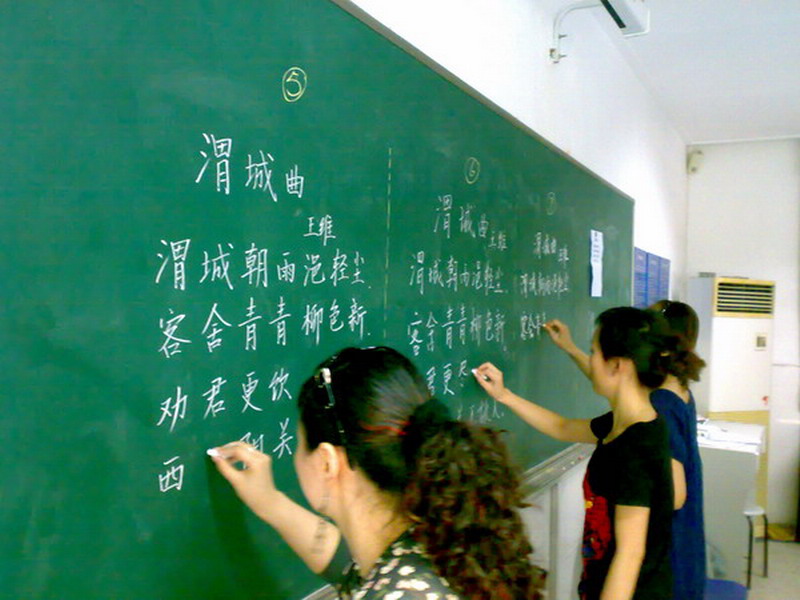 ⑤
渭城曲
王维
渭城朝雨浥轻尘.
客舍青青柳色新.
劝君更饮
西 阳关
⑥
渭城曲
王维
渭城朝雨浥轻尘.
客舍青青柳色新.
君更尽
人.
⑦
渭城曲
王维
渭城朝雨浥轻尘
客舍青